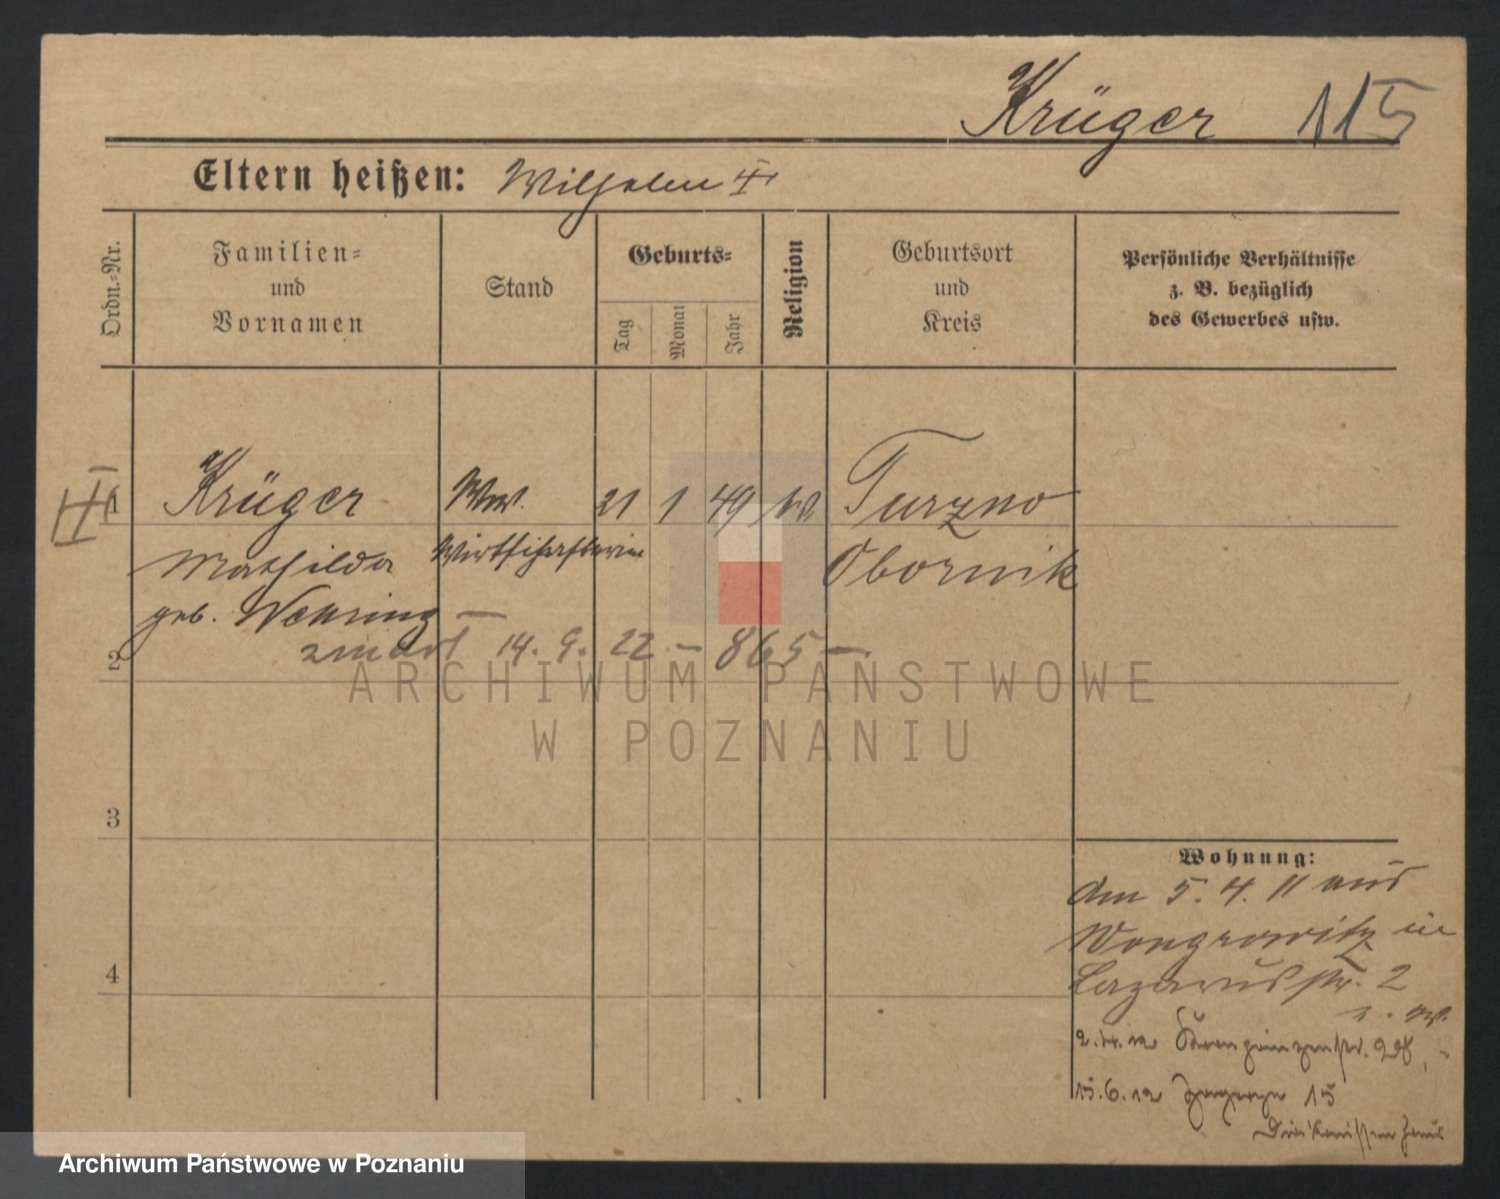 Krüger 115
Eltern heißen: Wilhelm
Ordn.-Nr.
Familien-
und
Vornamen
Stand
Geburts-
Tag
Monat
Jahr
Religion
Geburtsort
und
Kreis
Persönliche Verhältnisse
z. B. bezüglich
des Gewerbes usw.
1 Krüger Ww. 21 1 49 Turzno
Mathilda Wirtschafterin Obornik
geb. Wehring
2 zmarł 14. 9. 22 - 865 -
ARCHIWUM PAŃSTWOWE
W POZNANIU
3
4
Wohnung:
Am 5. 4. 11 aus
Wongrowitz in
Lazarusstr. 2
2.4.12 Kronprinzenstr.
15.6.12 15
Diakonissenhaus
Archiwum Państwowe w Poznaniu